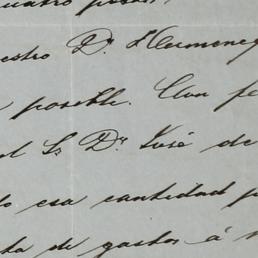 uatro pesos,
estro Dn. Hermene
posible. Con fe
al Sr Dn. José de
o esa cantidad p
ta de gastos á